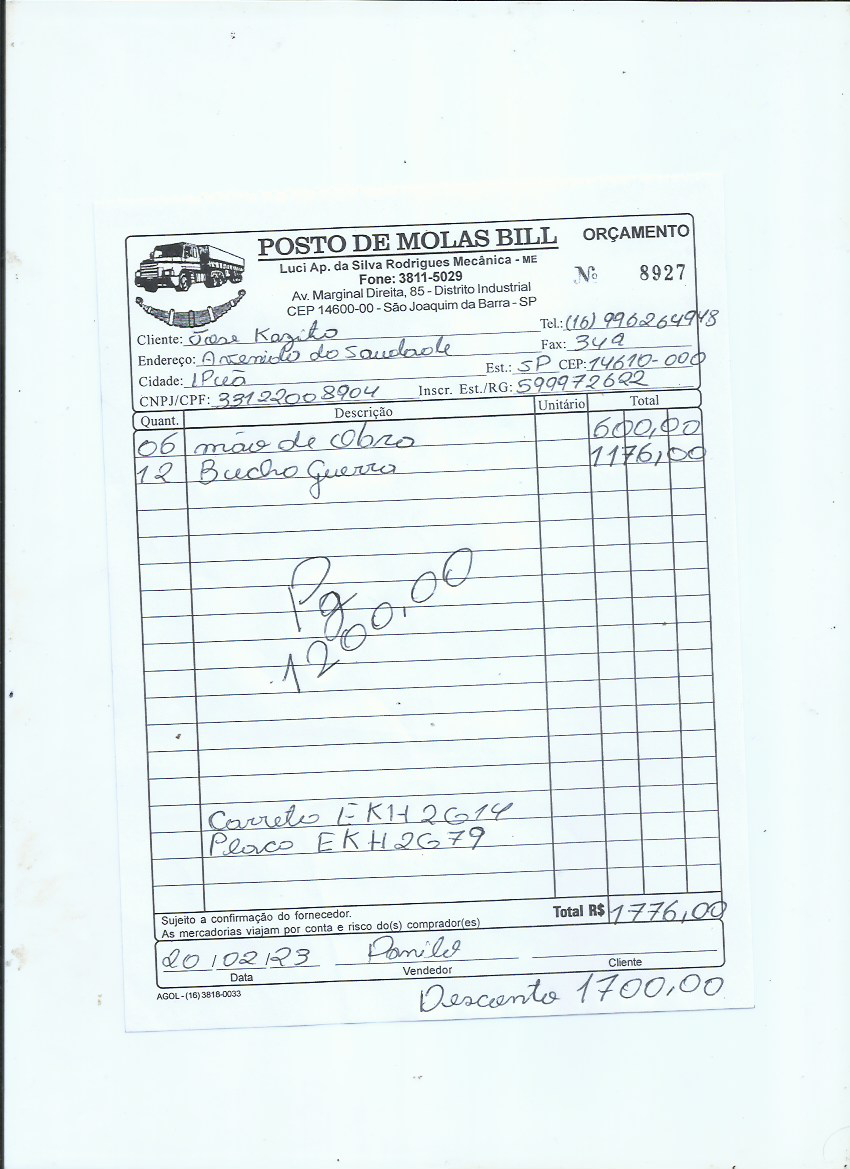 POSTO DE MOLAS BILL
ORÇAMENTO
Luci Ap. da Silva Rodrigues Mecânica - ME
Fone: 3811-5029
Av. Marginal Direita, 85 - Distrito Industrial
CEP 14600-00 - São Joaquim da Barra - SP
Nº 8927
Cliente: Jose Kazito Tel.: (16) 996264948
Endereço: Avenida do Saudade Fax: 349
Cidade: IPuã Est.: SP CEP: 14610-000
CNPJ/CPF: 33122008904 Inscr. Est./RG: 599972622
Quant. Descrição Unitário Total
06 mão de Obra 600,00
12 Bucha Guerra 1176,00
Pg
1200,00
Carreta EKH2G14
Placa EKH2G79
Sujeito a confirmação do fornecedor.
As mercadorias viajam por conta e risco do(s) comprador(es)
Total R$ 1776,00
20/02/23 Danilo
Data Vendedor Cliente
AGOL - (16) 3818-0033
Desconto 1700,00